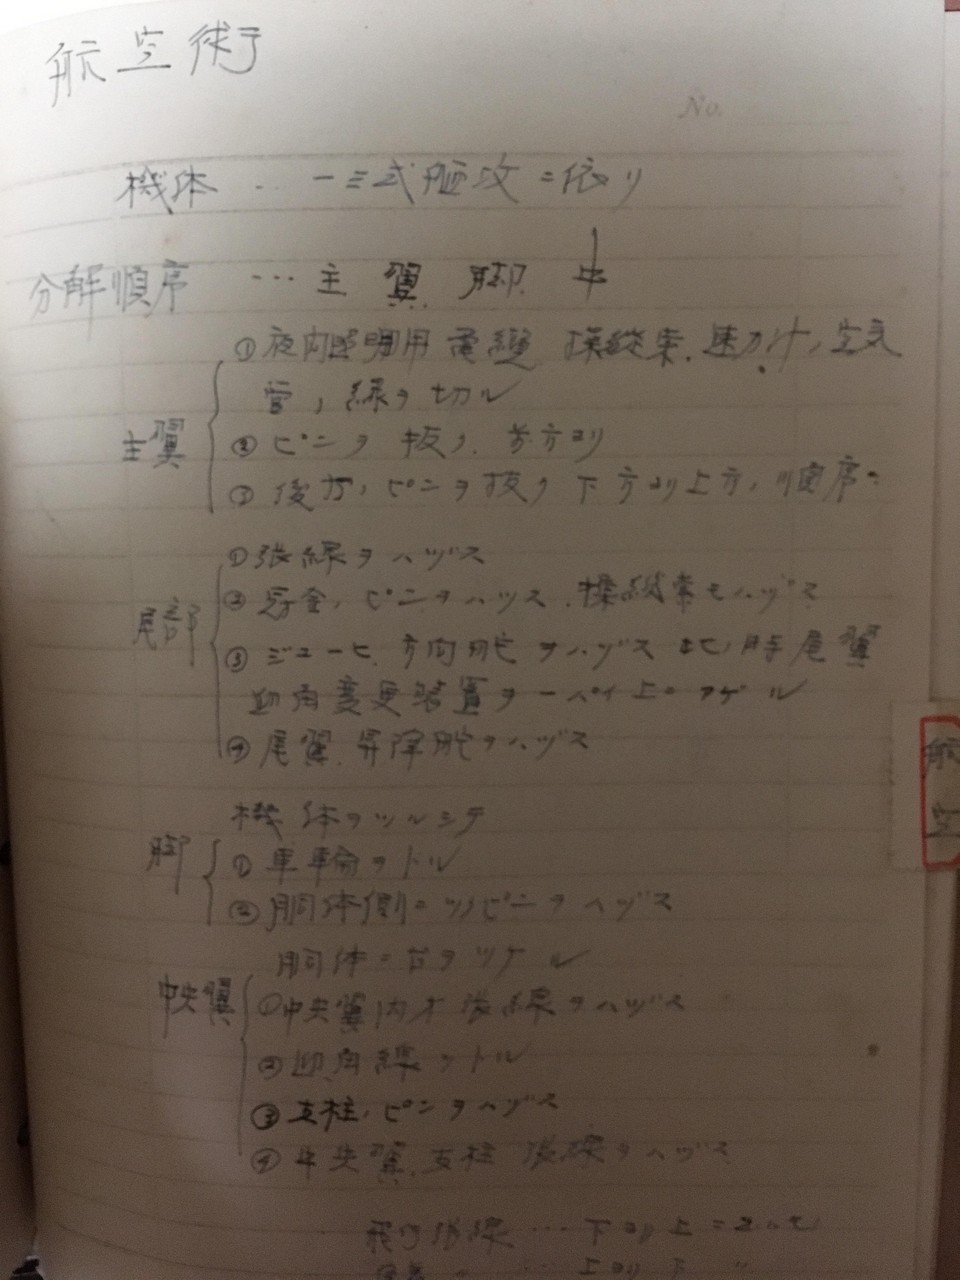 航空術
No.
機体 … 一三式艦攻ニ依リ
分解順序 … 主翼 脚 中
主翼
①夜間照明用電纜 操縦索、速力計ノ空気
管ノ線ヲ切ル
②ピンヲ抜ク 前方ヨリ
③後方ノピンヲ抜ク 下方ヨリ上方ノ順序ニ
尾部
①張線ヲハヅス
②ピンヲハヅス 操縦索モハヅス
③方向舵ヲハヅス 此ノ時尾翼
迎角変更装置ヲ一パイ上ニアゲル
④尾翼 昇降舵ヲハヅス
脚
機体ヲツルシテ
①車輪ヲトル
②胴体側ニツクピンヲハヅス
胴体ニ台ヲツケル
中央翼
①中央翼内方張線ヲハヅス
②迎角線ヲトル
③支柱ノピンヲハヅス
④中央翼支柱張線ヲハヅス
飛行張線 … 下ヨリ上ニ
〃 … 上ヨリ下 〃
航空